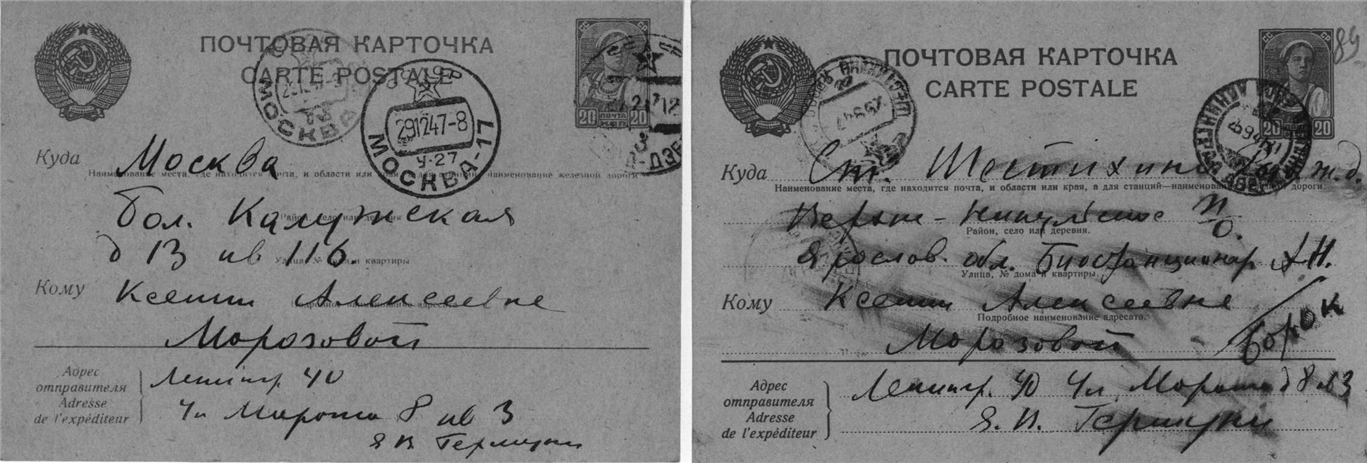 ПОЧТОВАЯ КАРТОЧКА
CARTE POSTALE
МОСКВА
29 12 47-8
У-27
МОСКВА-17
20 ПОЧТА 20
Куда Москва
Наименование места, где находится почта, и области или края, а для станций—наименование железной дороги
Бол. Калужская
Район, село или деревня
д 13 кв 116.
Улица, № дома и квартиры
Кому Ксении Алексеевне
Морозовой
Адрес отправителя
Adresse de l'expéditeur
Ленингр 40
Ул Марата 8 кв 3
ПОЧТОВАЯ КАРТОЧКА
CARTE POSTALE
89
20 20
Куда Ст. Шестихино ж.д.
Наименование места, где находится почта, и области или края, а для станций—наименование железной дороги
п/о.
Район, село или деревня.
Ярослав. обл. АН.
Улица, № дома и квартиры.
Кому Ксении Алексеевне
Подробное наименование адресата.
Морозовой Борок
Адрес отправителя
Adresse de l'expéditeur
Ленингр. 40 Ул. Марата д 8 кв 3